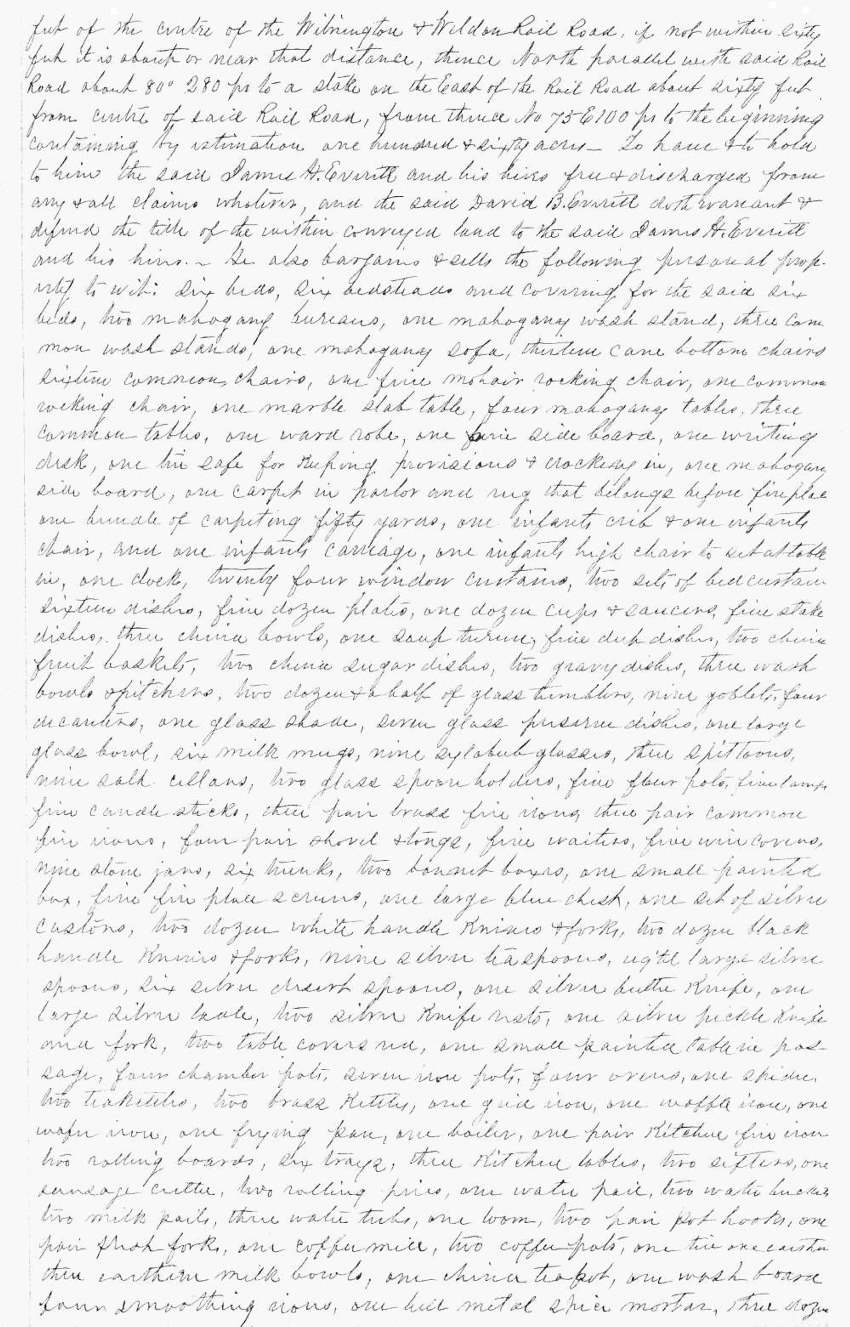 feet of the centre of the Wilmington & Weldon Rail Road, if not within sixty
feet it is about or near that distance, thence North parallel with said Rail
Road about 80° 280 ps to a stake on the East of the Rail Road about sixty feet
from centre of said Rail Road, from thence No 75 E 100 ps to the beginning
containing by estimation one hundred & sixty acres — To have & to hold
to him the said James H. Everitt and his heirs free & discharged from
any & all claims whatever, and the said David B. Everitt doth warrant &
defend the title of the within conveyed land to the said James H. Everitt
and his heirs. — He also bargains & sells the following personal prop-
erty to wit: six beds, six bedsteads and covering for the said six
beds, two mahogany bureaus, one mahogany wash stand, three com
mon wash stands, one mahogany sofa, thirteen cane bottom chairs
sixteen common chairs, one fine mohair rocking chair, one common
rocking chair, one marble slab table, four mahogany tables, three
common tables, one ward robe, one side board, one writing
desk, one tin safe for keeping provisions & crockery in, one mahogany
side board, one carpet in parlor and rug that belongs before fireplace
one bundle of carpeting fifty yards, one infants crib & one infants
chair, and one infants carriage, one infants high chair to set at table
in, one clock, twenty four window curtains, two sets of bed curtain
sixteen dishes, five dozen plates, one dozen cups & saucers, five stake
dishes, three china bowls, one soup tureen, five deep dishes, two china
fruit baskets, two china sugar dishes, two gravy dishes, three wash
bowls & pitchers, two dozen & a half of glass tumblers, nine goblets, four
decanters, one glass shade, seven glass preserve dishes, one large
glass bowl, six milk mugs, nine sylabub glasses, three spittoons,
nine salt cellars, two glass spoon holders, five flour pots, five lamps
five candle sticks, three pair brass fire irons three pair common
fire irons, four pair shovel & tongs, five waiters, five wire covers,
nine stone jars, six trunks, two bonnet boxes, one small painted
box, five fire place screens, one large blue chest, one set of silver
castors, two dozen white handle Knives & forks, two dozen black
handle Knives & forks, nine silver teaspoons, eight large silver
spoons, six silver desert spoons, one silver butter Knife, one
large silver ladle, two silver Knife rests, one silver pickle Knife
and fork, two table covers red, one small painted table in pas-
sage, four chamber pots, seven iron pots, four ovens, one spider,
two teakettles, two brass Kettles, one grid iron, one waffle iron, one
wafer iron, one frying pan, one boiler, one pair Kitchen fire iron
two rolling boards, six trays, three Kitchen tables, two sifters, one
sausage cutter, two rolling pins, one water pail, two water buckets
two milk pails, three water tubs, one loom, two pair pot hooks, one
pair flesh forks, one coffee mill, two coffee pots, one tin one earthen
three earthern milk bowls, one china teapot, one wash board
four smoothing irons, one bell metal spice mortar, three dozen